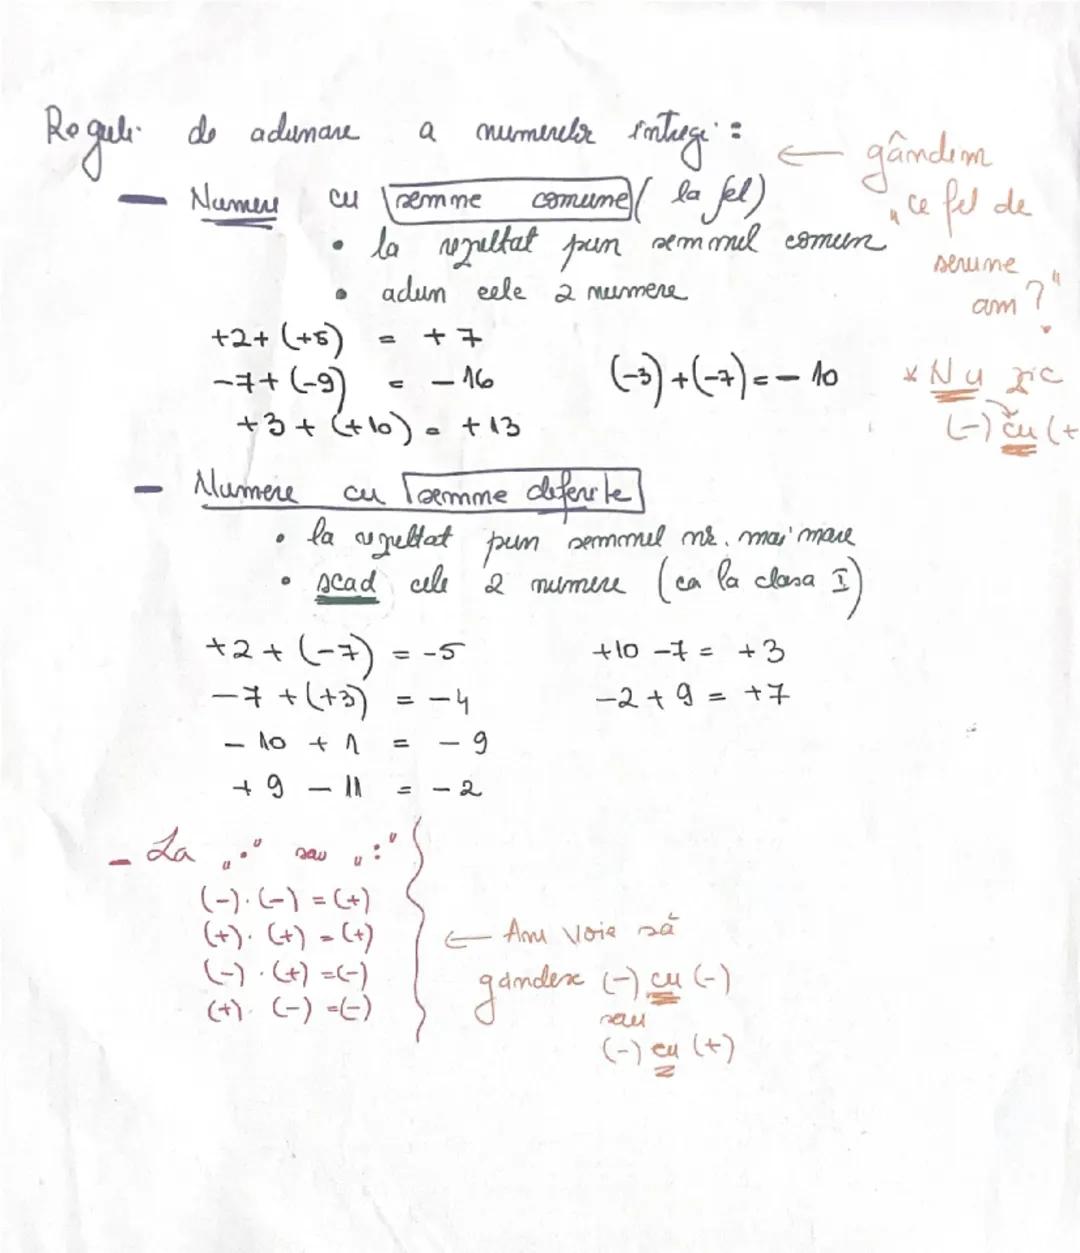 Reguli de adunare a numerelor întregi :
← gândim
„ce fel de
semne
am ?"
— Numere cu semne comune ( la fel)
• la rezultat pun semnul comun
• adun cele 2 numere
+2+ (+5) = + 7
-7+ (-9) = - 16
(-3) +(-7) = - 10
+3 + (+10) = +13
* Nu zic
(-) cu (+
— Numere cu semne diferite
• la rezultat pun semnul nr. mai mare
• scad cele 2 numere (ca la clasa I)
+2 + (-7) = -5
+10 -7 = +3
-7 +(+3) = -4
-2 + 9 = +7
- 10 + 1 = - 9
+ 9 - 11 = - 2
- La „·" sau „:"
(-).(-) = (+)
(+). (+) = (+)
(-) .(+) =(-)
(+). (-) =(-)
← Am voie să
gândesc (-) cu (-)
sau
(-) cu (+)